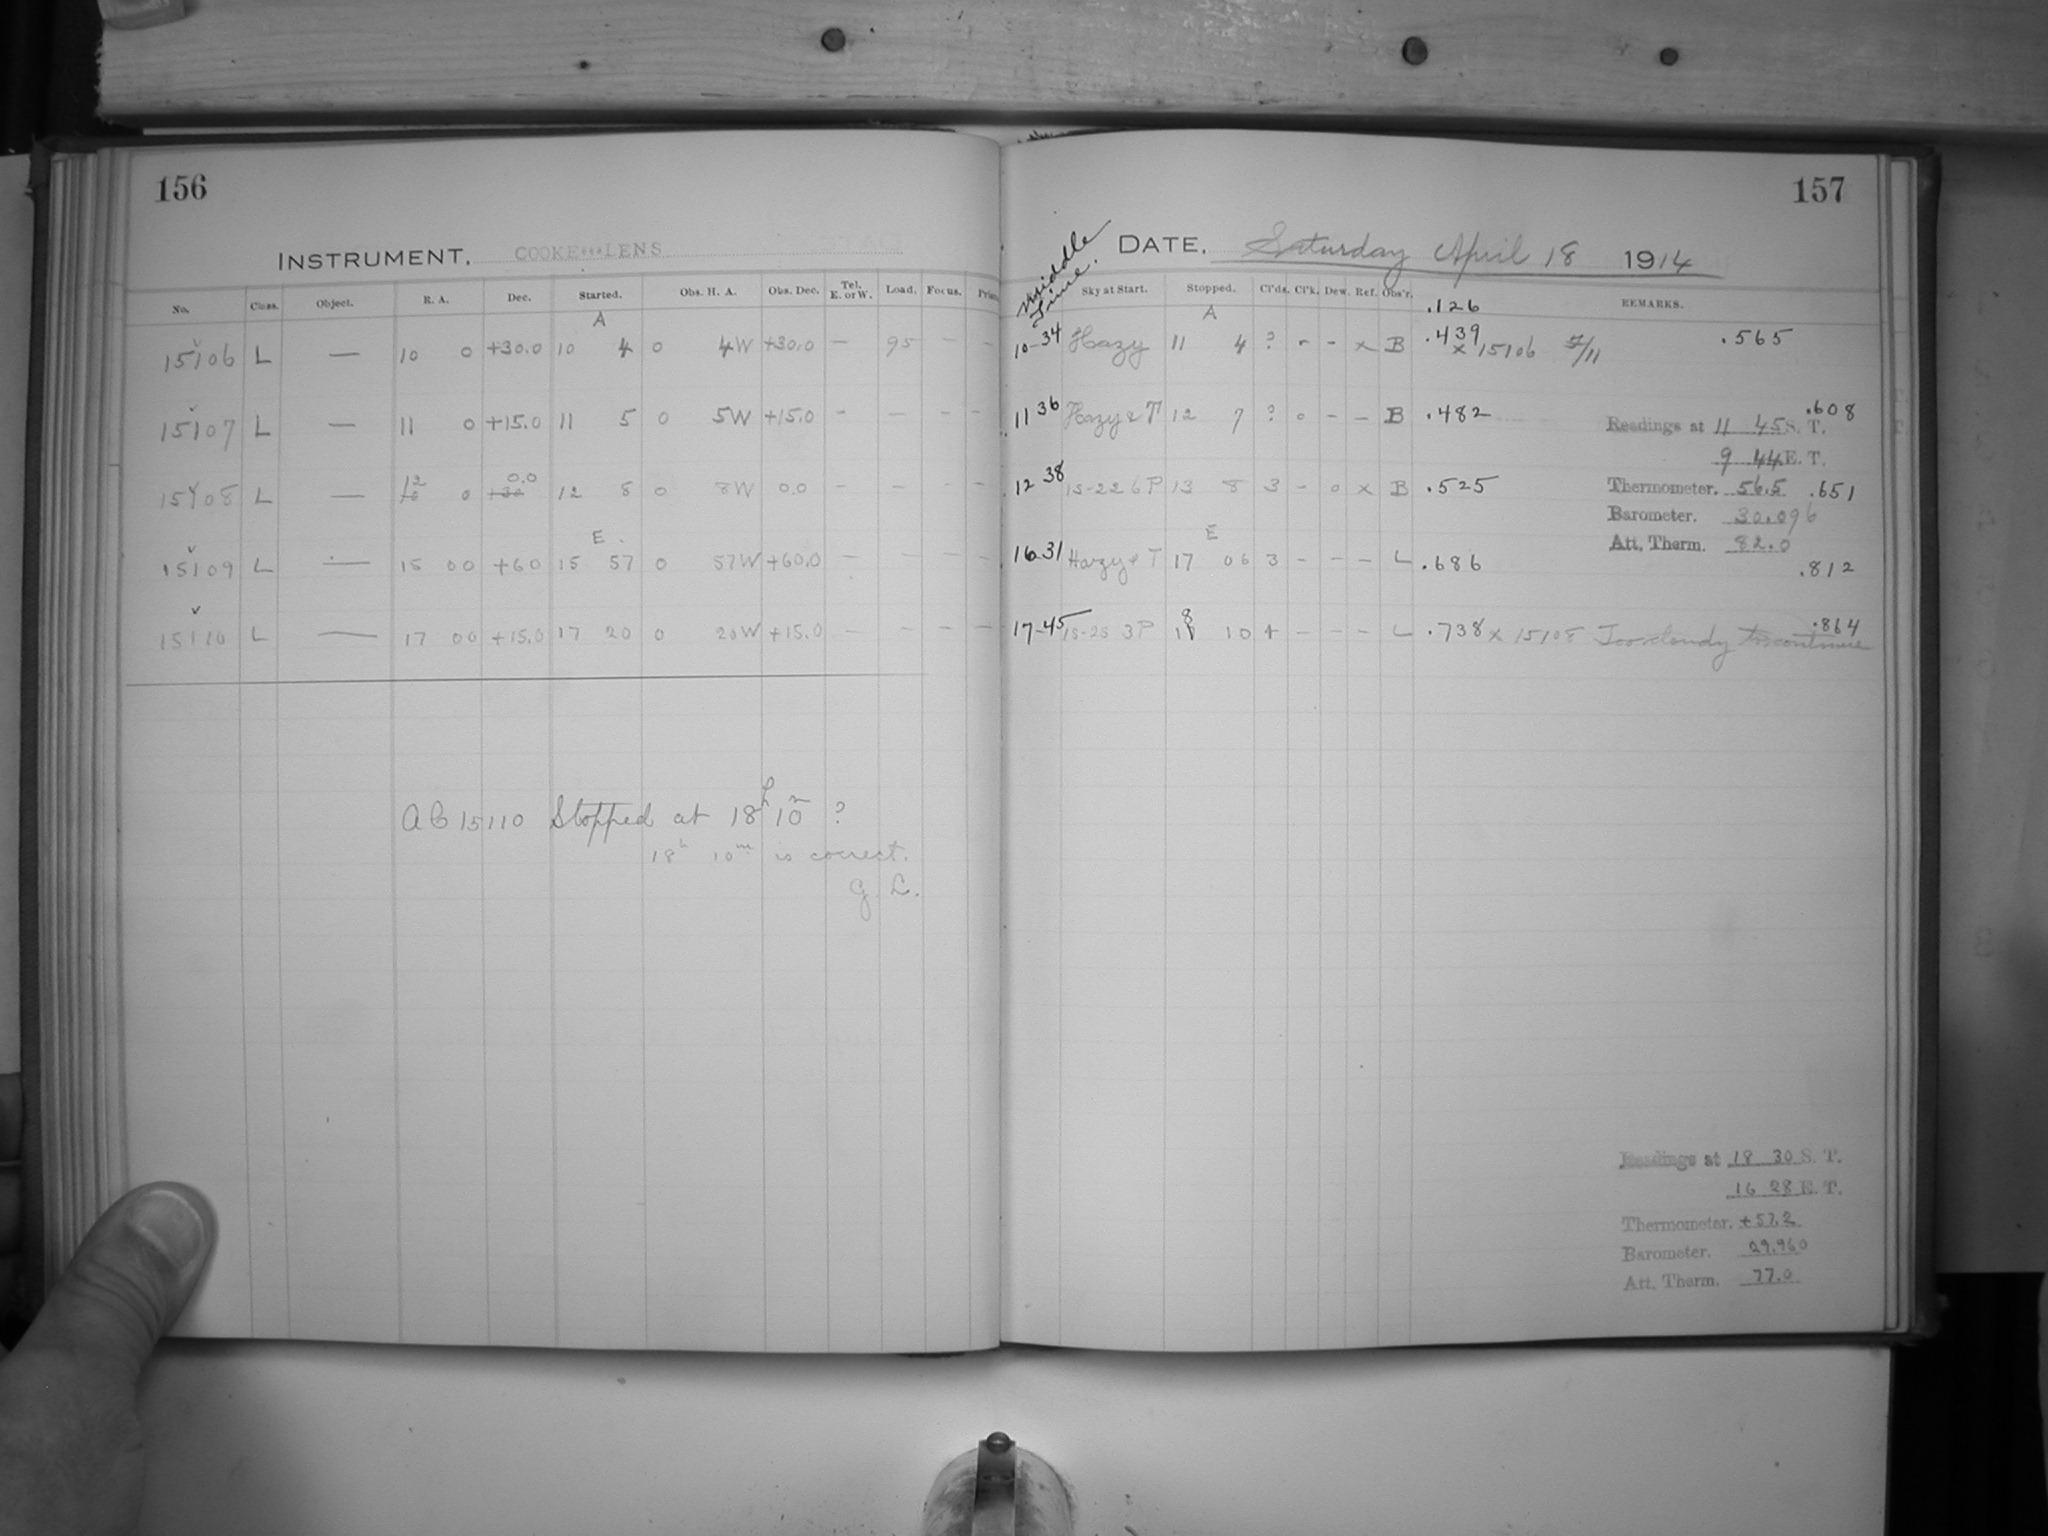 156
INSTRUMENT. COOKE LENS
No. Class. Object. R. A. Dec. Started. Obs. H. A. Obs. Dec. Tel. E. or W. Load. Focus.
A
15106 L — 10 0 +30.0 10 4 0 4W +30.0 — 95 — —
15107 L — 11 0 +15.0 11 5 0 5W +15.0 — — — —
12 0.0
15108 L — 10 0 +30 12 8 0 8W 0.0 — — — —
E.
15109 L — 15 00 +60 15 57 0 57W +60.0 — — — —
15110 L — 17 00 +15.0 17 20 0 20W +15.0 — — — —
AC 15110 Stopped at 18h 10m ?
18h 10m is correct.
G. L.
157
Middle Time.
DATE. Saturday April 18 1914
Sky at Start. Stopped. Cl'ds. Cl'k. Dew. Ref. Obs'r. REMARKS.
.126
A
10-34 Hazy 11 4 ? - - x B .439 x 15106 .565
11 36 Hazy & T 12 7 ? o - - B .482 .608
Readings at 11 45 S. T.
9 44 E. T.
12 38 15-22 6P 13 8 3 - o x B .525 .651
Thermometer. 56.5
Barometer. 30.096
Att. Therm. 82.0
E
16 31 Hazy & T 17 06 3 - - - L .686 .812
8
17-45 15-25 3P 17 10 4 - - - L .738 x 15108 Too cloudy to continue .864
Readings at 18 30 S. T.
16 28 E. T.
Thermometer. +57.2
Barometer. 29.960
Att. Therm. 77.0